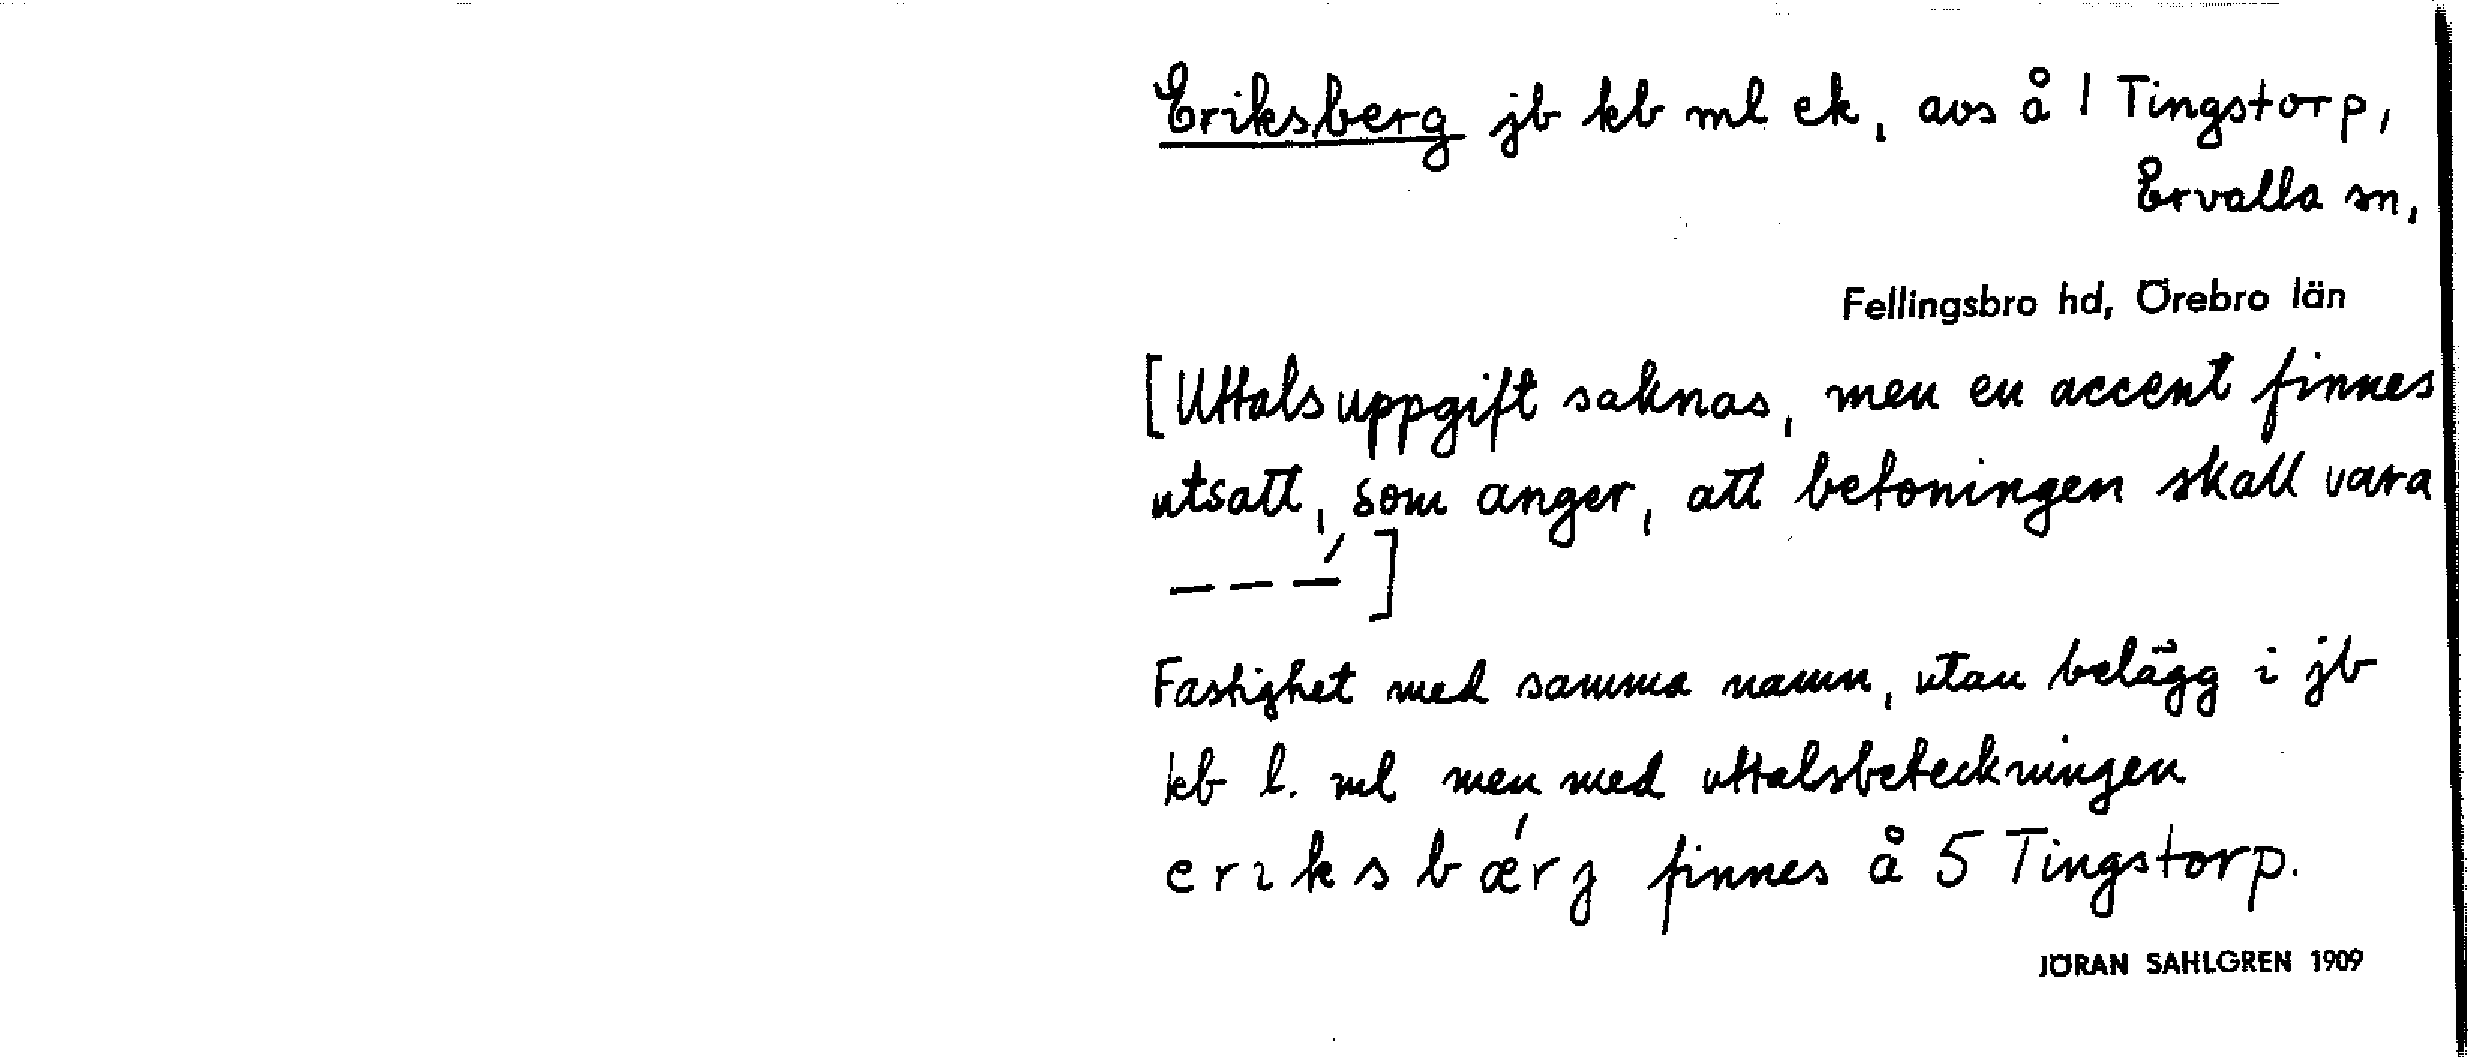 Eriksberg jb kb ml ek, avs å 1 Tingstorp,
Ervalla sn,
Fellingsbro hd, Örebro län
[Uttalsuppgift saknas, men en accent finnes
utsatt, som anger, att betoningen skall vara
– – –́ ]
Fastighet med samma namn, utan belägg i jb
kb l. ml men med uttalsbeteckningen
erıksbǽrȷ finnes å 5 Tingstorp.
JÖRAN SAHLGREN 1909